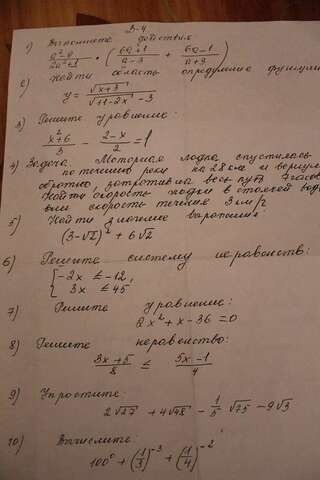 В-4
1) Выполните действия
(a²-9)/(2a²+1) · ((6a+1)/(a-3) + (6a-1)/(a+3))
2) Найти область определение функции
y = √(x+3)/(√(11-2x) - 3)
3) Решите уравнение:
(x²+6)/3 - (2-x)/2 = 1
4) Задача. Моторная лодка спустилась
по течению реки на 28 км и вернулась
обратно, затратив на весь путь 7 часов
Найти скорость лодки в стоячей воде
если скорость течения 3 км/ч
5) Найти значение выражения:
(3-√2)² + 6√2
6) Решите систему неравенств:
{-2x ≤ -12,
3x ≤ 45
7) Решите уравнение:
2x² + x - 36 = 0
8) Решите неравенство:
(3x+5)/8 ≤ (5x-1)/4
9) Упростите:
2√27 + 4√48 - 1/5 √75 - 9√3
10) Вычислите:
100⁰ + (1/3)⁻³ + (1/4)⁻²